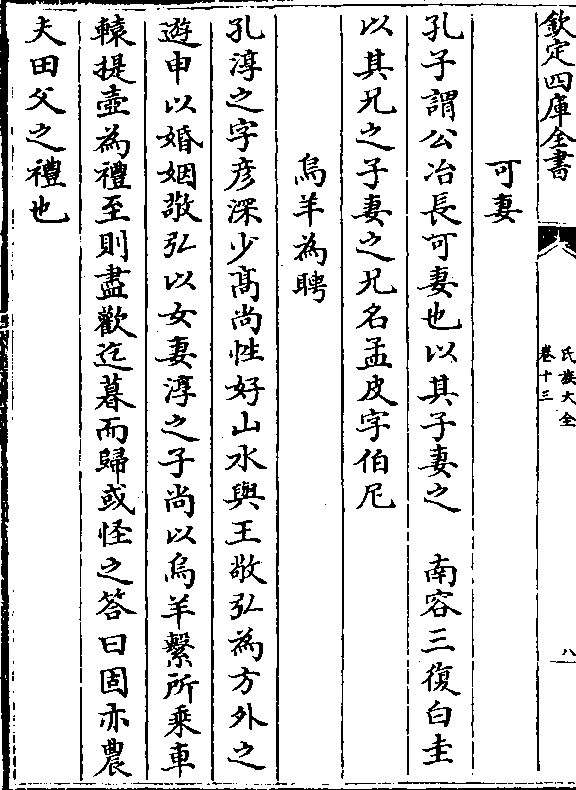 欽定四庫全書
氏族大全
卷十三
八
可妻
孔子謂公冶長可妻也以其子妻之　南容三復白圭
以其兄之子妻之兄名孟皮字伯尼
烏羊為聘
孔淳之字彦深少髙尚性好山水與王敬弘為方外之
遊申以婚姻敬弘以女妻淳之子尚以烏羊繫所乗車
轅提壺為禮至則盡歡迄暮而歸或怪之答曰固亦農
夫田父之禮也